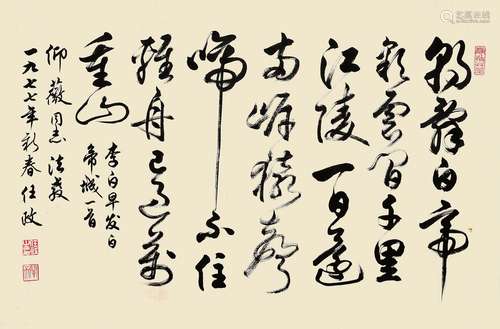 朝辞白帝
彩云间千里
江陵一日还
两岸猿声
啼不住
轻舟已过万
重山
李白早发白
帝城一首
仰薇同志法教
一九七七年新春任政